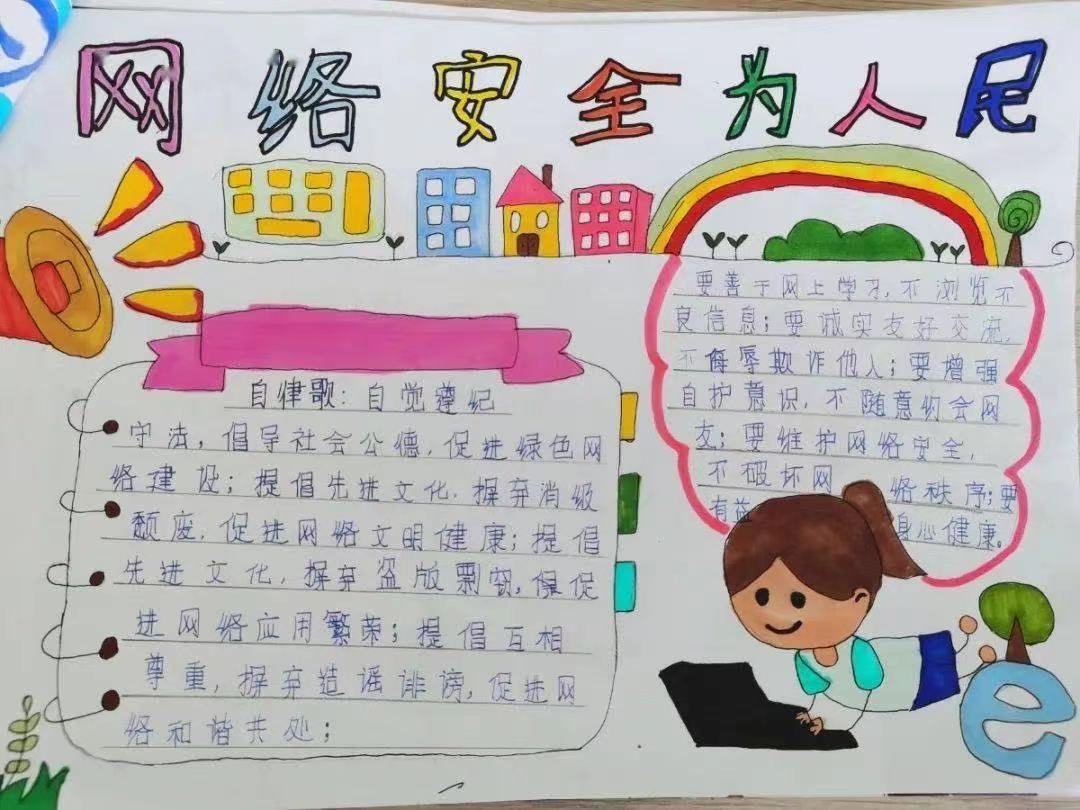 网络安全为人民
自律歌:自觉遵纪
守法,倡导社会公德,促进绿色网
络建设;提倡先进文化.摒弃消级
颓废.促进网络文明健康;提倡
先进文化,摒弃盗版剽窃,保促
进网络应用繁荣;提倡互相
尊重,摒弃造谣诽谤,促进网
络和谐共处;
要善于网上学习,不浏览不
良信息;要诚实友好交流,
不侮辱欺诈他人;要增强
自护意识,不随意约会网
友;要维护网络安全,
不破坏网 络秩序;要
有益 身心健康。
e